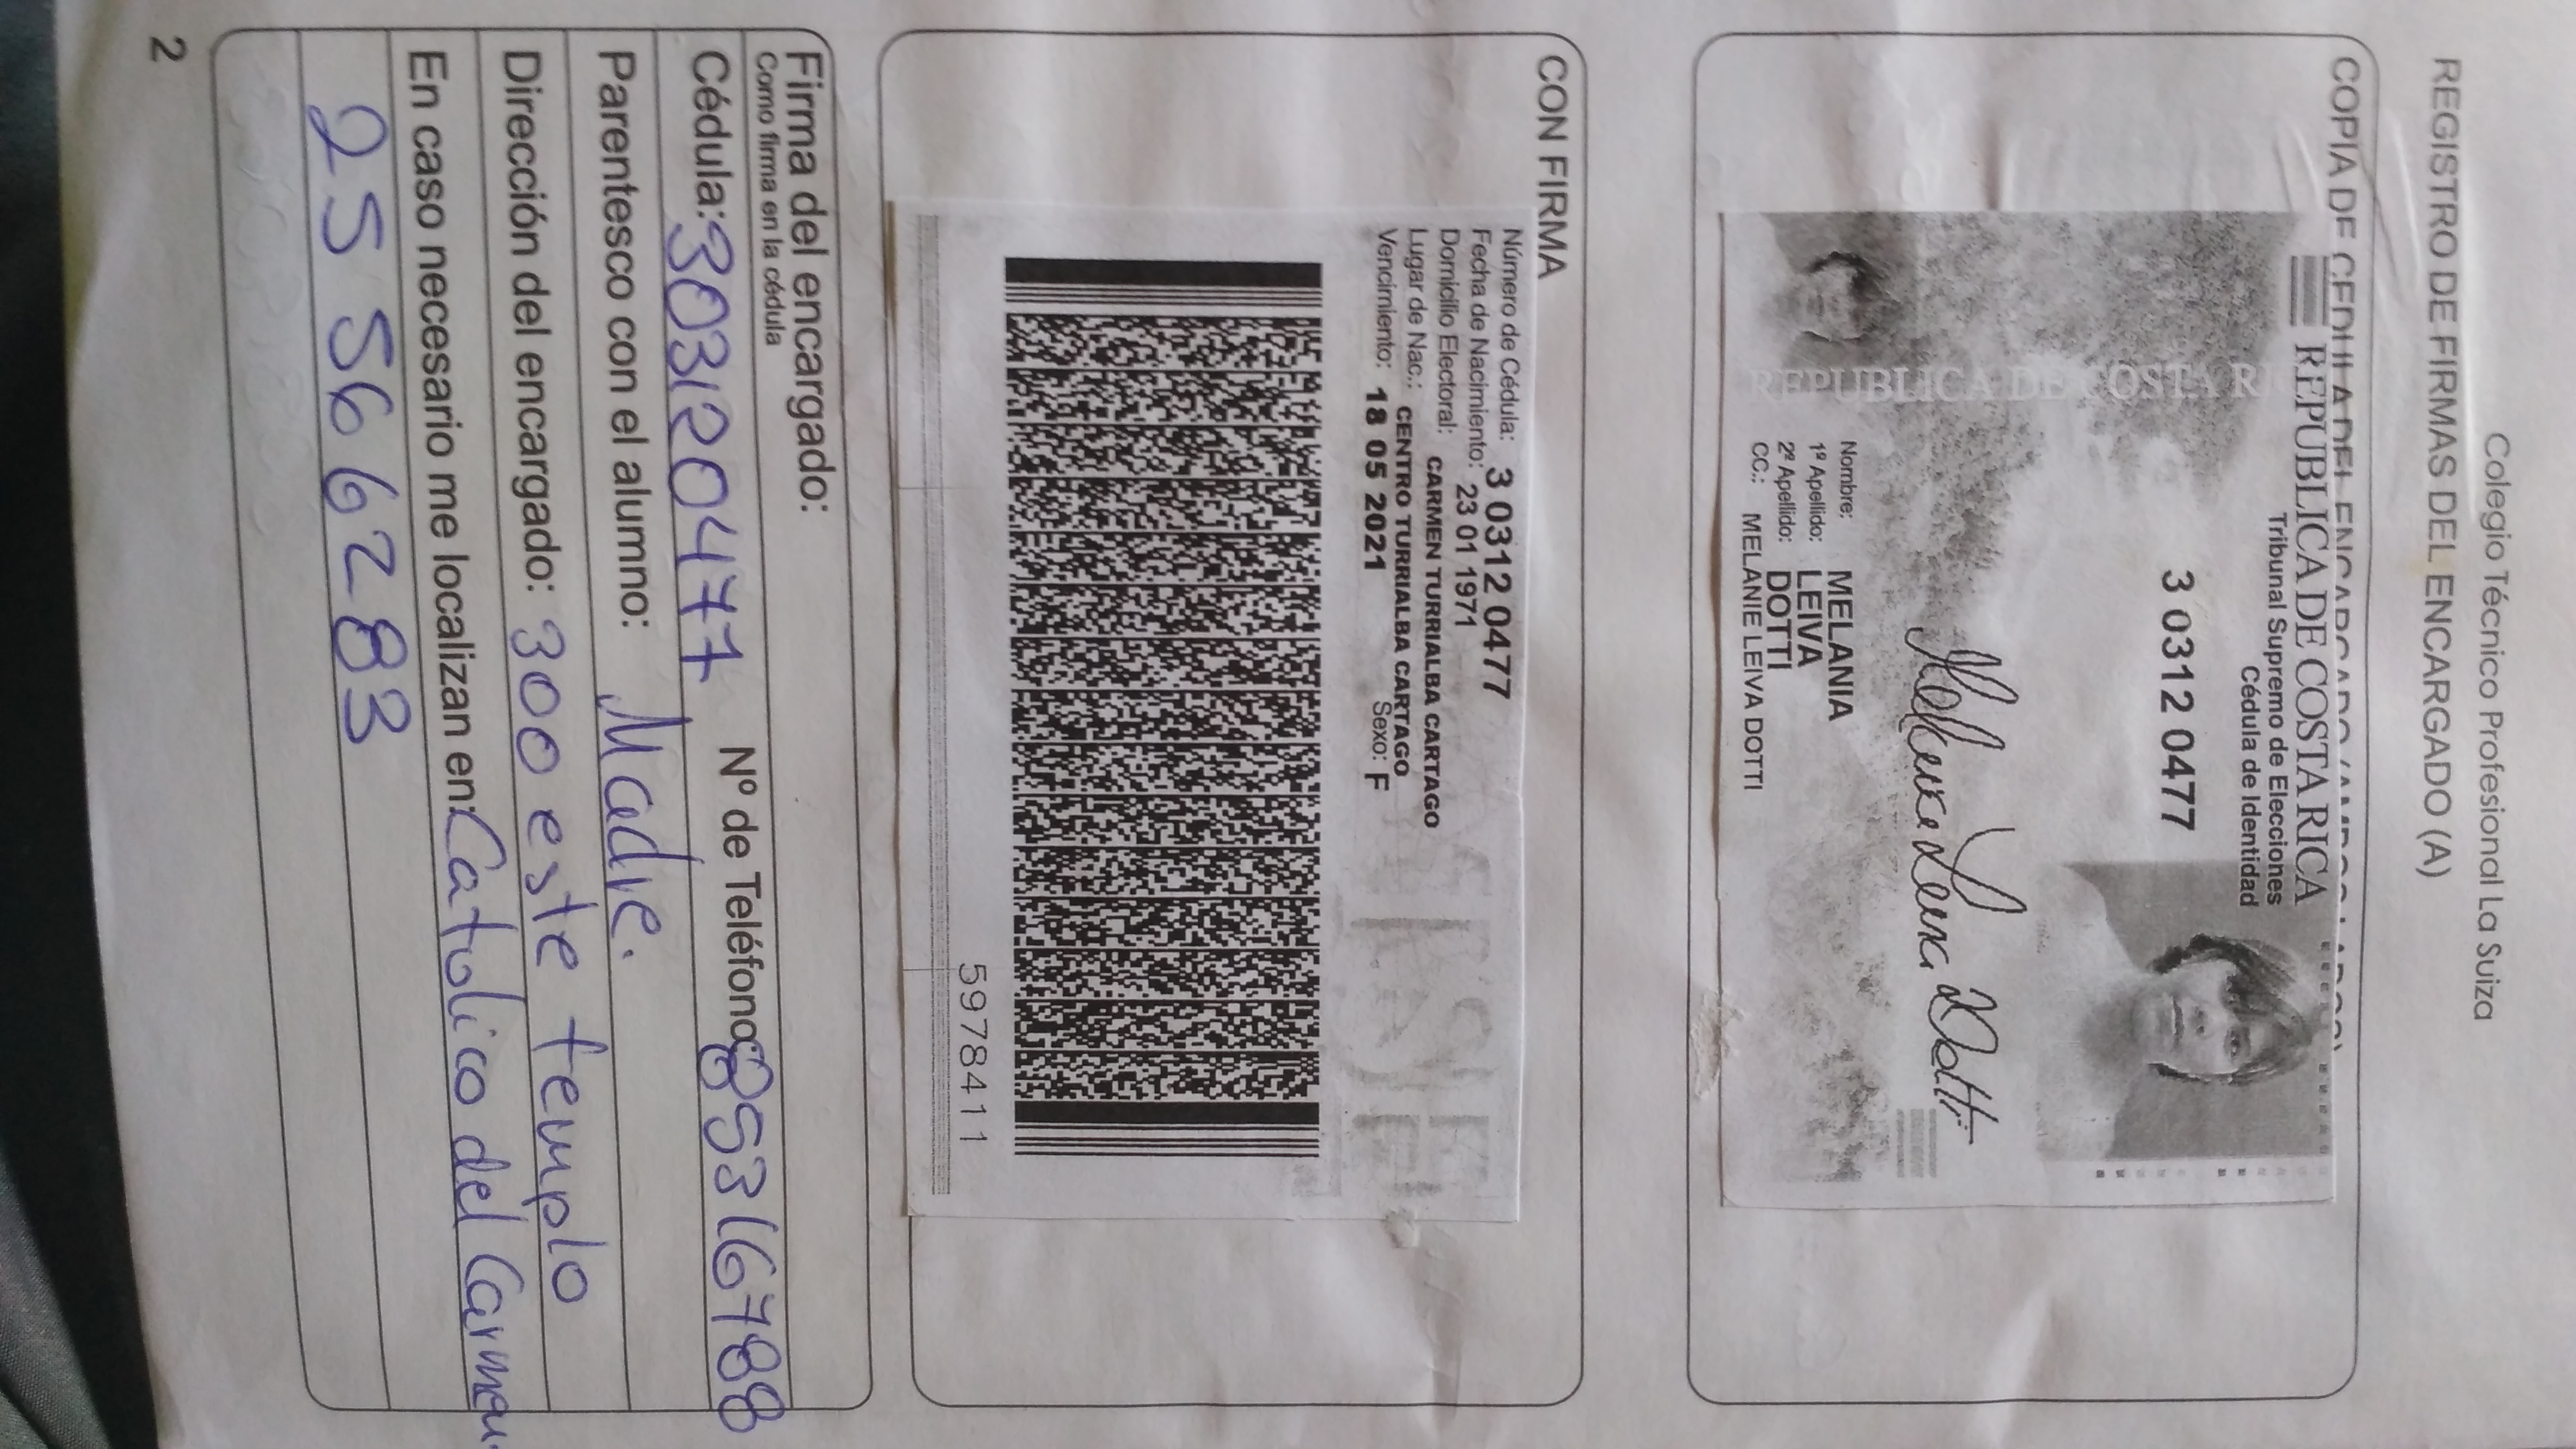 Colegio Técnico Profesional La Suiza
REGISTRO DE FIRMAS DEL ENCARGADO (A)
COPIA DE CEDULA DEL ENCARGADO
REPUBLICA DE COSTA RICA
Tribunal Supremo de Elecciones
Cédula de Identidad
3 0312 0477
REPUBLICA DE COSTA RI
Nombre: MELANIA
1º Apellido: LEIVA
2º Apellido: DOTTI
CC.: MELANIE LEIVA DOTTI
CON FIRMA
Número de Cédula: 3 0312 0477
Fecha de Nacimiento: 23 01 1971
Domicilio Electoral: CARMEN TURRIALBA CARTAGO
Lugar de Nac.: CENTRO TURRIALBA CARTAGO
Vencimiento: 18 05 2021 Sexo: F
5978411
Firma del encargado:
Como firma en la cédula
Cédula: 303120477 Nº de Teléfono: 85316788
Parentesco con el alumno: Madre.
Dirección del encargado: 300 este templo
En caso necesario me localizan en: Catolico del Carmen.
25566283
2